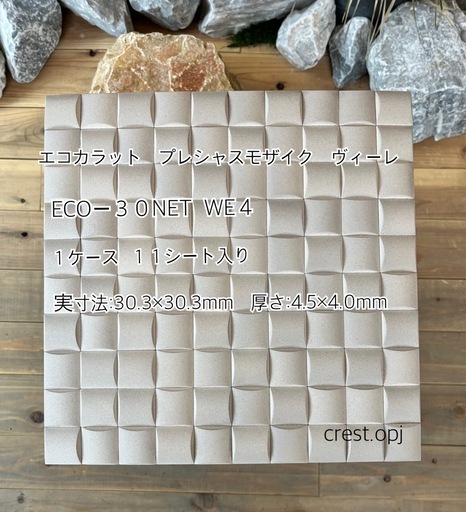 エコカラット　プレシャスモザイク　ヴィーレ
ECOー３０NET　WE４
１ケース　１１シート入り
実寸法:30.3×30.3mm　厚さ:4.5×4.0mm
crest.opj